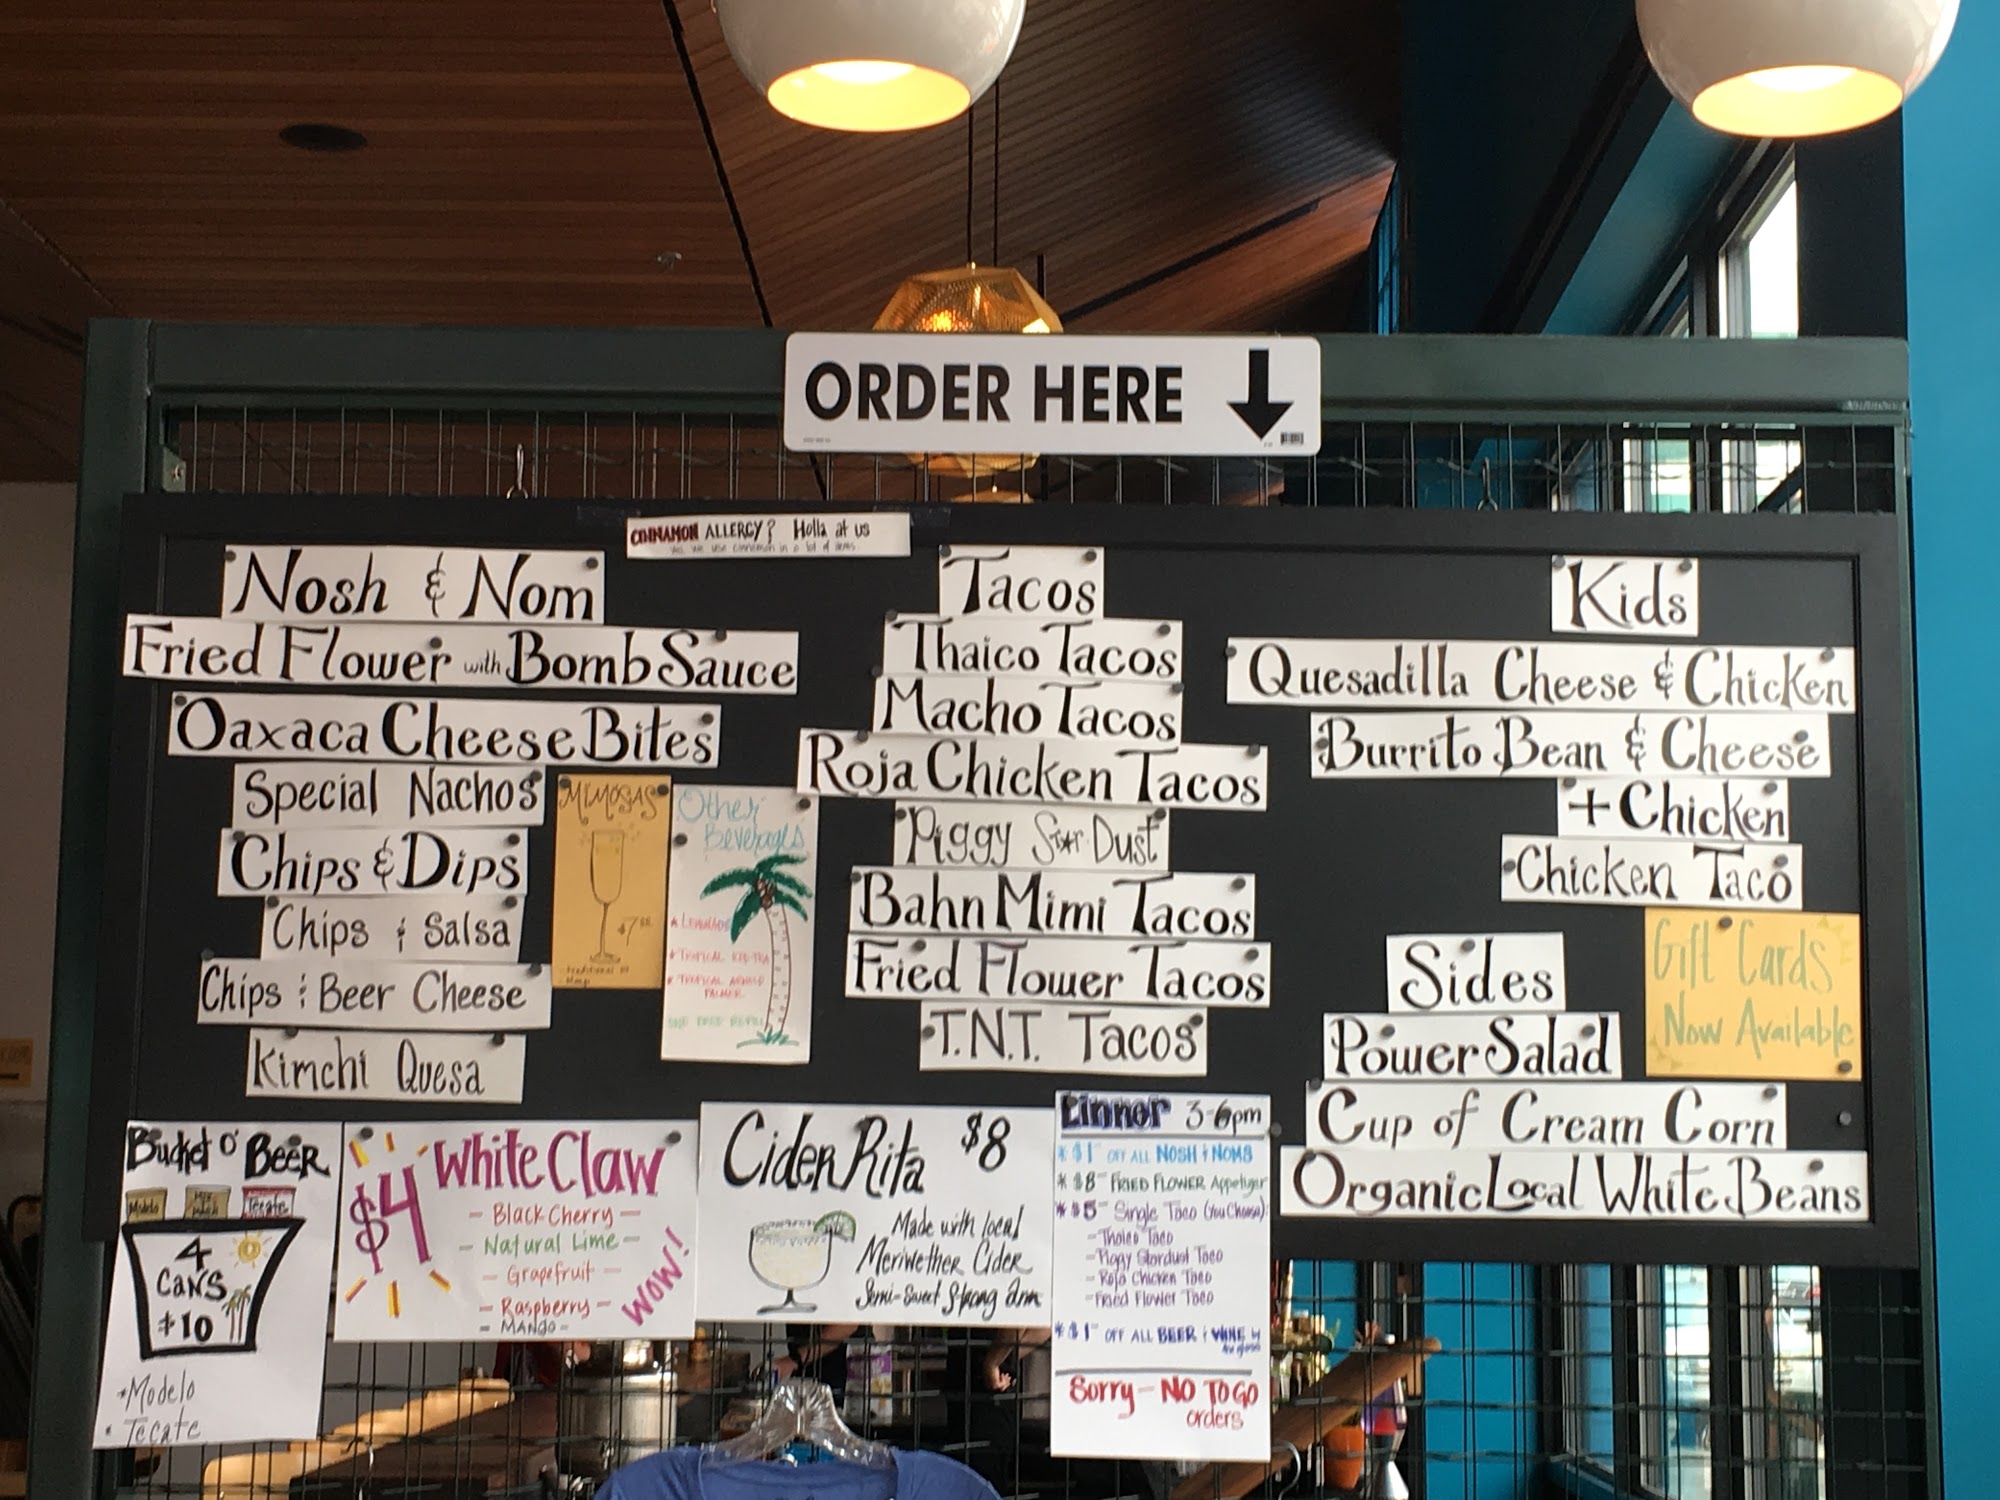 ORDER HERE
CINNAMON ALLERGY? Holla at us
Yes, we use cinnamon in a lot of items
Nosh & Nom
Fried Flower with Bomb Sauce
Oaxaca Cheese Bites
Special Nachos
Chips & Dips
Chips & Salsa
Chips & Beer Cheese
Kimchi Quesa
MIMOSAS
$7
Other
Beverages
* LEMONADE
* TROPICAL
* TROPICAL ARNOLD
PALMER
ONE FREE REFILL
Tacos
Thaico Tacos
Macho Tacos
Roja Chicken Tacos
Piggy Star Dust
Bahn Mimi Tacos
Fried Flower Tacos
T.N.T. Tacos
Kids
Quesadilla Cheese & Chicken
Burrito Bean & Cheese
+ Chicken
Chicken Taco
Gift Cards
Now Available
Sides
Power Salad
Cup of Cream Corn
Organic Local White Beans
Bucket O' BEER
Modelo
Tecate
4
CANS
$10
* Modelo
* Tecate
$4 White Claw
- Black Cherry -
- Natural Lime -
- Grapefruit -
- Raspberry -
- MANGO -
WOW!
Cider Rita $8
Made with local
Meriwether Cider
Semi-Sweet Strong Arm
Linner 3-6pm
* $1 OFF ALL NOSH & NOMS
* $8 FRIED FLOWER Appetizer
* $5 Single Taco (You Choose):
- Thaico Taco
- Piggy Stardust Taco
- Roja Chicken Taco
- Fried Flower Taco
* $1 OFF ALL BEER & WINE by
the glass
Sorry - NO TO GO
orders